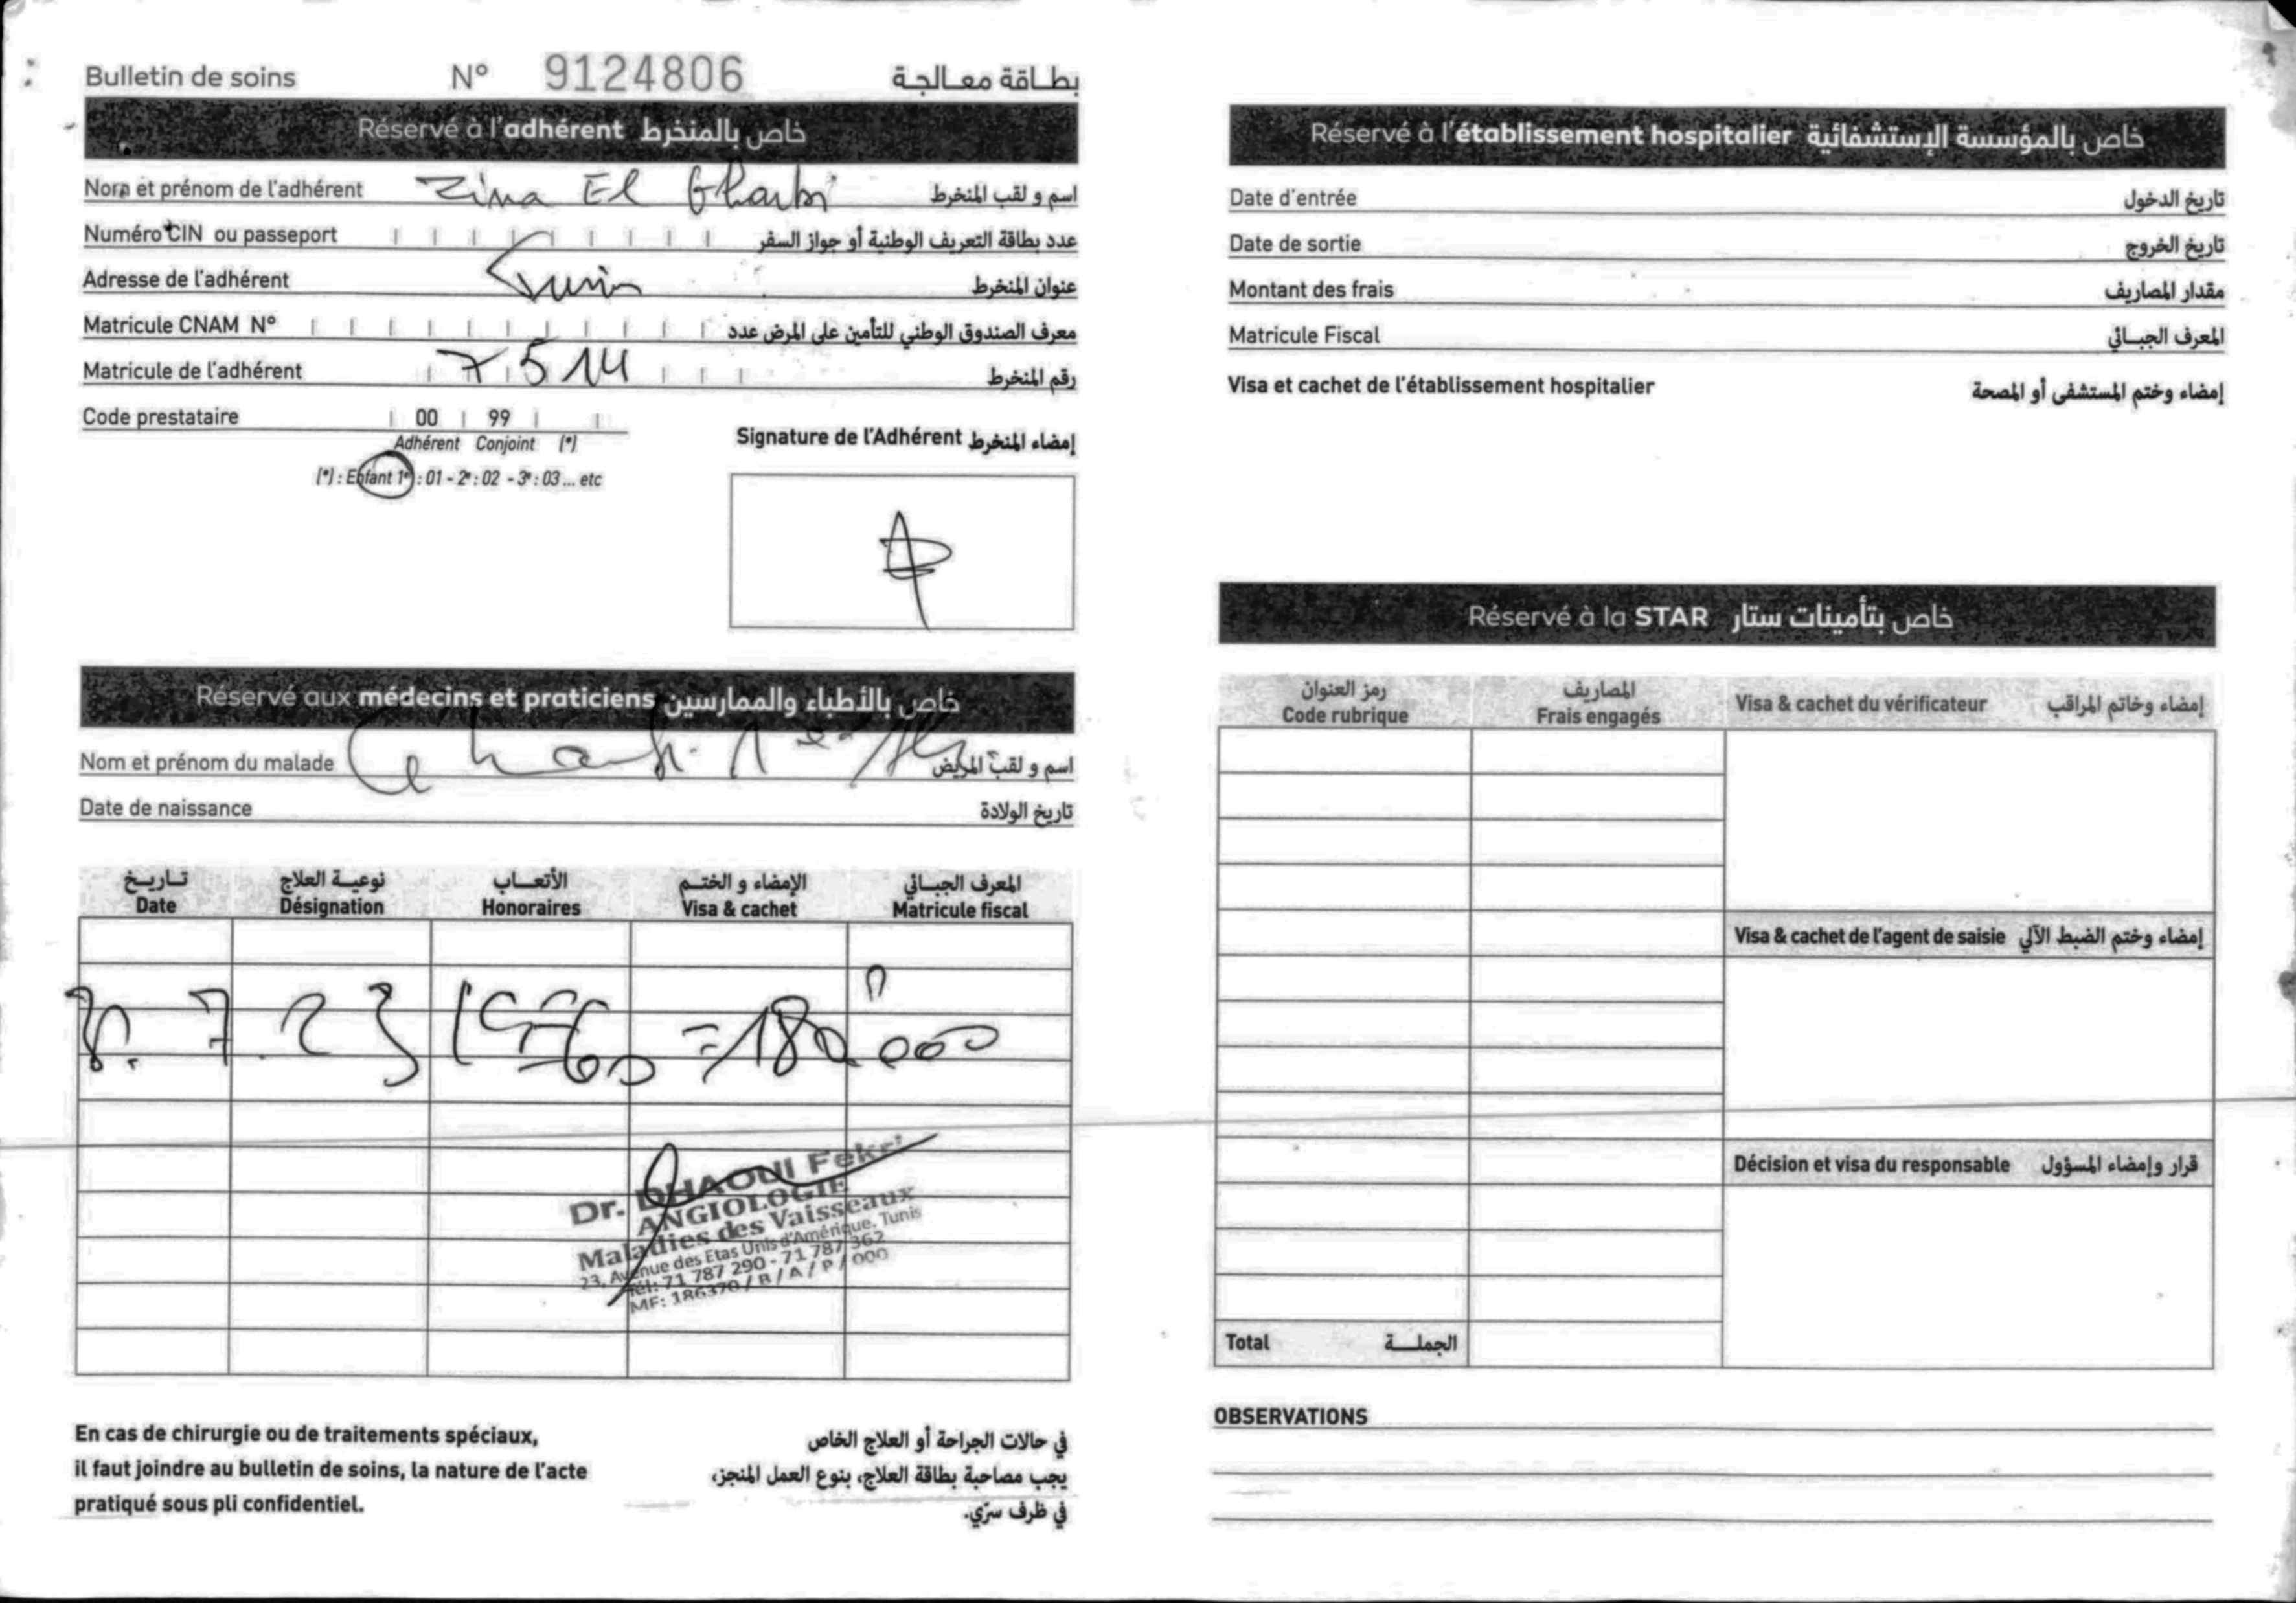 Bulletin de soins N° 9124806 بطاقة معالجة
Réservé à l'adhérent خاص بالمنخرط
Nom et prénom de l'adhérent Zina El Gharbi اسم و لقب المنخرط
Numéro CIN ou passeport عدد بطاقة التعريف الوطنية أو جواز السفر
Adresse de l'adhérent Tunis عنوان المنخرط
Matricule CNAM N° معرف الصندوق الوطني للتأمين على المرض عدد
Matricule de l'adhérent 7514 رقم المنخرط
Code prestataire 00 99
Adhérent Conjoint (*)
(*) : Enfant 1e : 01 - 2e : 02 - 3e : 03 ... etc
Signature de l'Adhérent إمضاء المنخرط
Réservé aux médecins et praticiens خاص بالأطباء والممارسين
Nom et prénom du malade اسم و لقب المريض
Date de naissance تاريخ الولادة
تاريخ نوعية العلاج الأتعاب الإمضاء و الختم المعرف الجبائي
Date Désignation Honoraires Visa & cachet Matricule fiscal
7.23 = 180,000
Dr. DHAOUI Fekri
ANGIOLOGIE
Maladies des Vaisseaux
23, Avenue des Etas Unis d'Amérique. Tunis
Tél: 71 787 290 - 71 787 362
MF: 186370 / B / A / P / 000
En cas de chirurgie ou de traitements spéciaux,
il faut joindre au bulletin de soins, la nature de l'acte
pratiqué sous pli confidentiel.
في حالات الجراحة أو العلاج الخاص
يجب مصاحبة بطاقة العلاج، بنوع العمل المنجز،
في ظرف سرّي.
Réservé à l'établissement hospitalier خاص بالمؤسسة الإستشفائية
Date d'entrée تاريخ الدخول
Date de sortie تاريخ الخروج
Montant des frais مقدار المصاريف
Matricule Fiscal المعرف الجبائي
Visa et cachet de l'établissement hospitalier إمضاء وختم المستشفى أو المصحة
Réservé à la STAR خاص بتأمينات ستار
رمز العنوان المصاريف
Code rubrique Frais engagés Visa & cachet du vérificateur إمضاء وخاتم المراقب
Visa & cachet de l'agent de saisie إمضاء وختم الضبط الآلي
Décision et visa du responsable قرار وإمضاء المسؤول
Total الجملة
OBSERVATIONS